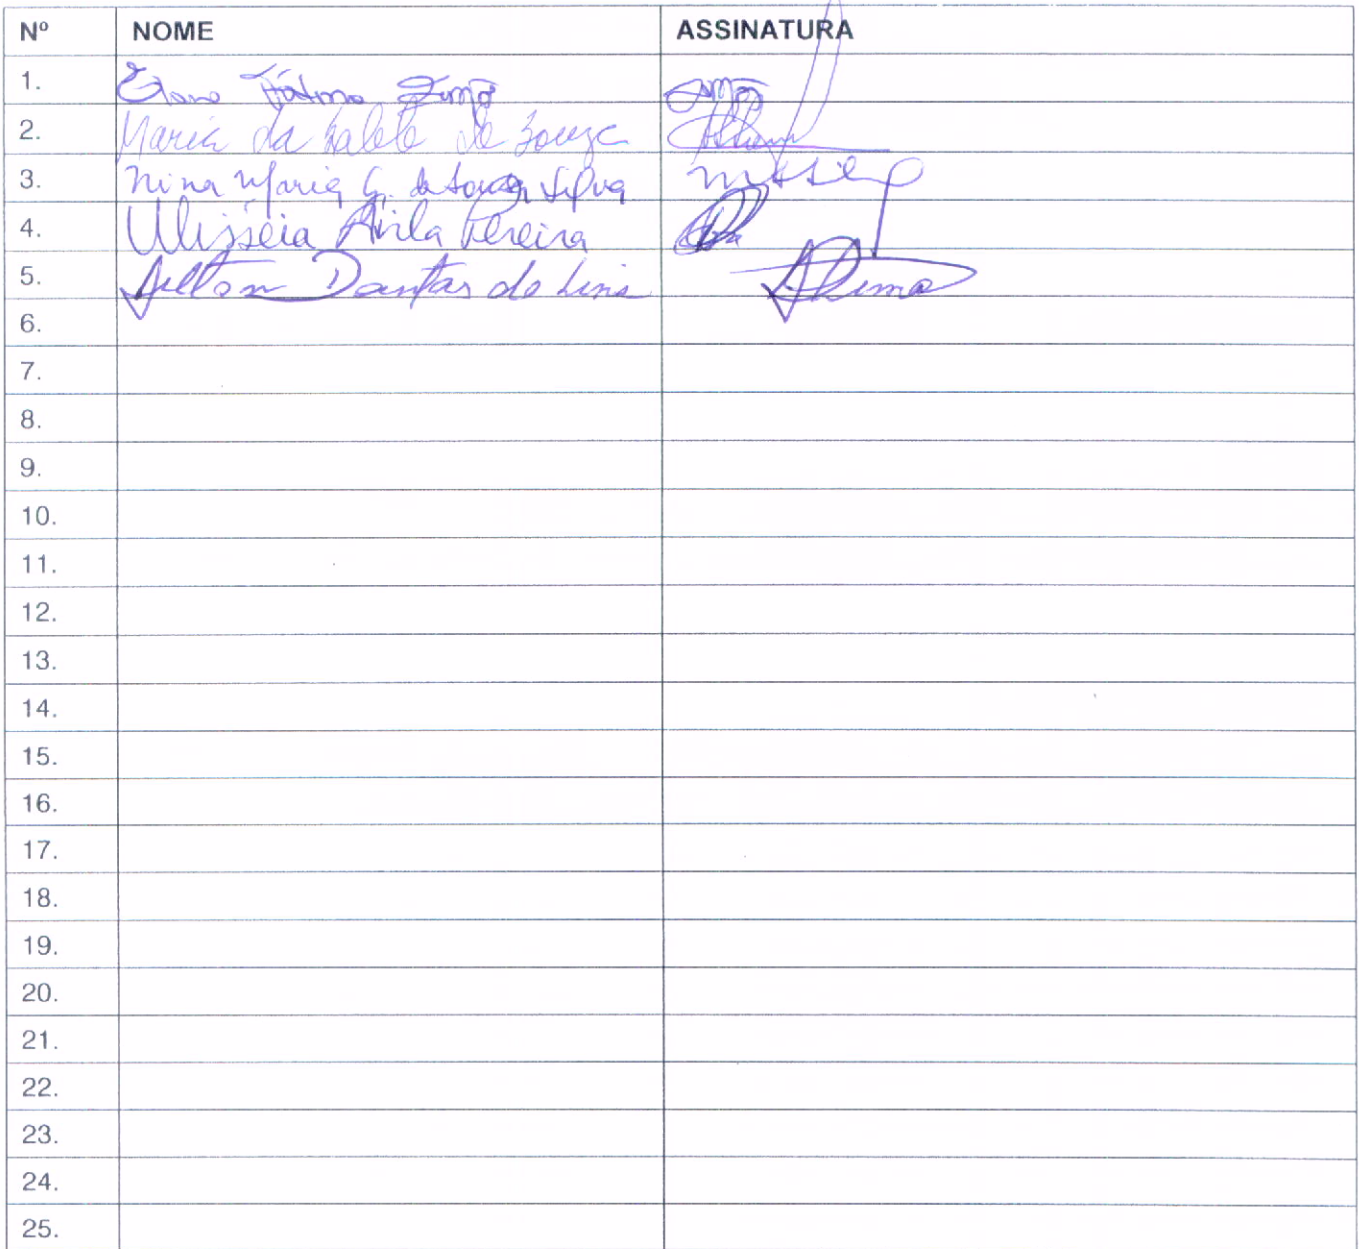 Nº NOME ASSINATURA
1. Fátima
2. Maria da Salete de Souza
3. Nina Maria G. de Souza Silva
4. Ulisséia Ávila Pereira
5. Dantas de Lima
6.
7.
8.
9.
10.
11.
12.
13.
14.
15.
16.
17.
18.
19.
20.
21.
22.
23.
24.
25.